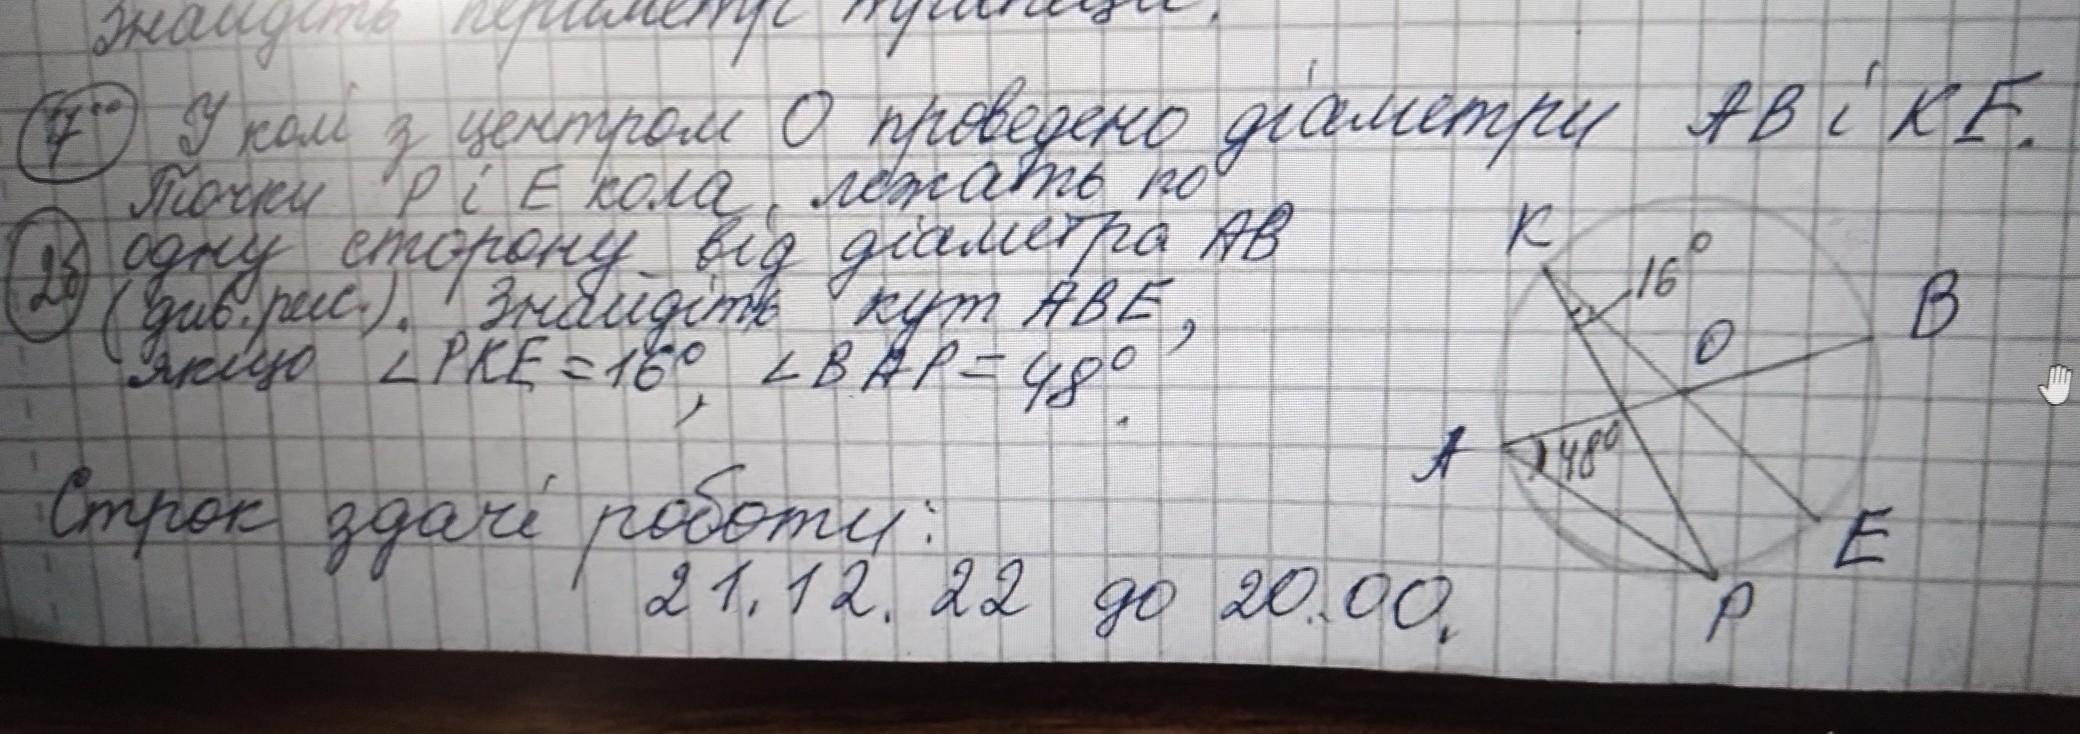 Знайдіть периметр трапеції.
7°° У колі з центром О проведено діаметри АВ і КЕ.
Точки Р і Е кола, лежать по
2б одну сторону від діаметра АВ
(див. рис.). Знайдіть кут АВЕ,
якщо ∠РКЕ = 16°, ∠ВАР = 48°.
К
16°
В
О
А
48°
Е
Р
Строк здачі роботи:
21.12.22 до 20.00.